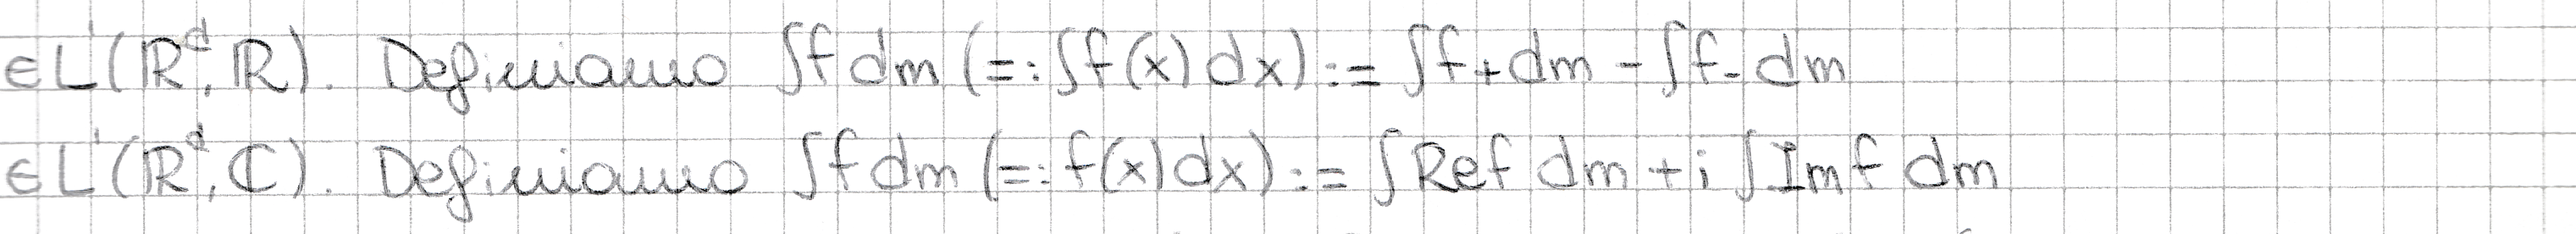 ∈ L¹(ℝᵈ, ℝ). Definiamo ∫f dm (=: ∫f(x) dx) := ∫f₊ dm - ∫f₋ dm
∈ L¹(ℝᵈ, ℂ). Definiamo ∫f dm (=: f(x) dx) := ∫Re f dm + i ∫Im f dm